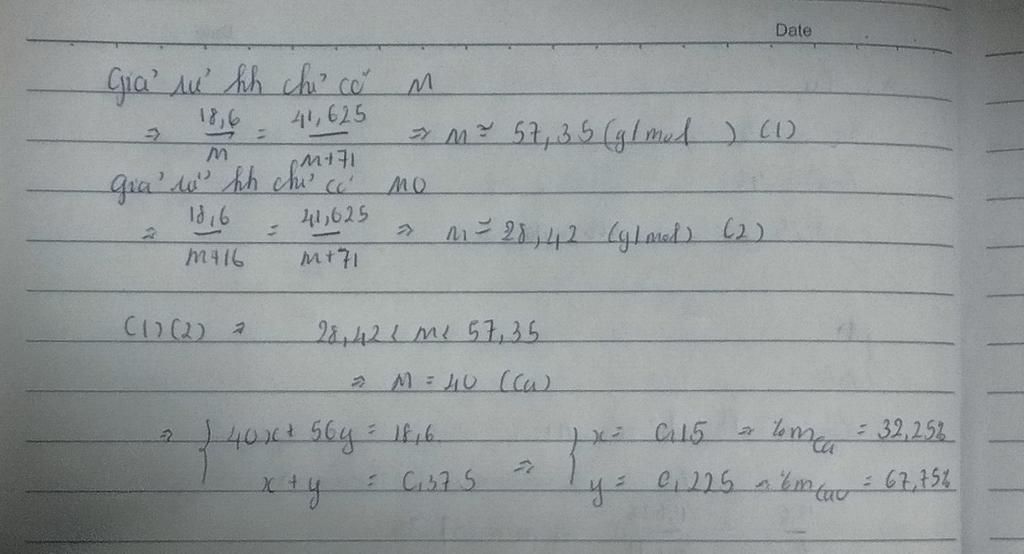 Date
Giả sử hh chỉ có M
⇒ 18,6/M = 41,625/M+71 ⇒ M ≈ 57,35 (g/mol) (1)
Giả sử hh chỉ có MO
⇒ 18,6/M+16 = 41,625/M+71 ⇒ M ≈ 28,42 (g/mol) (2)
(1)(2) ⇒ 28,42 < M < 57,35
⇒ M = 40 (Ca)
⇒ { 40x + 56y = 18,6 ⇒ { x = 0,15 ⇒ %mCa = 32,25%
x + y = 0,375 y = 0,225 ⇒ %mCaO = 67,75%